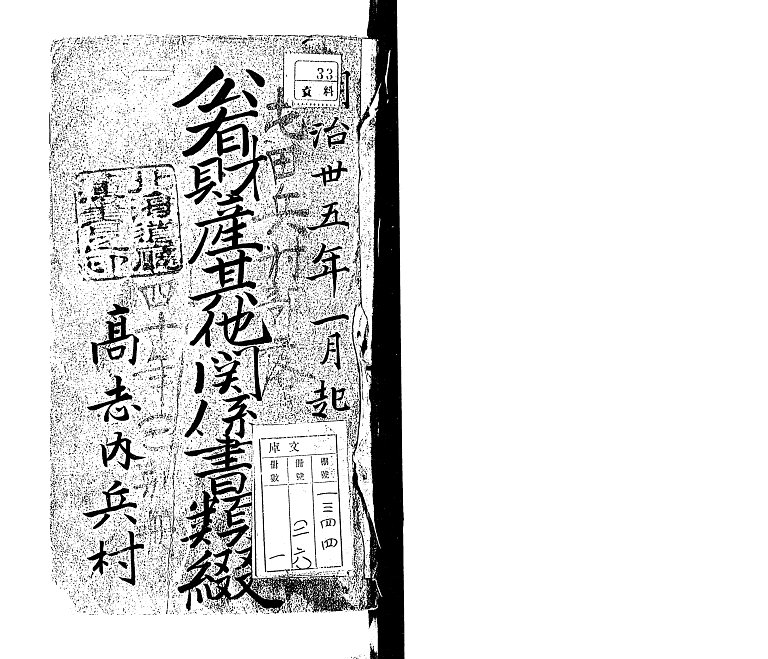 33
資料
治卅五年一月起
屯田兵村
公有財産其他関係書類綴
高志内兵村
北海道廳
文庫
一三四四
冊號
冊數 一